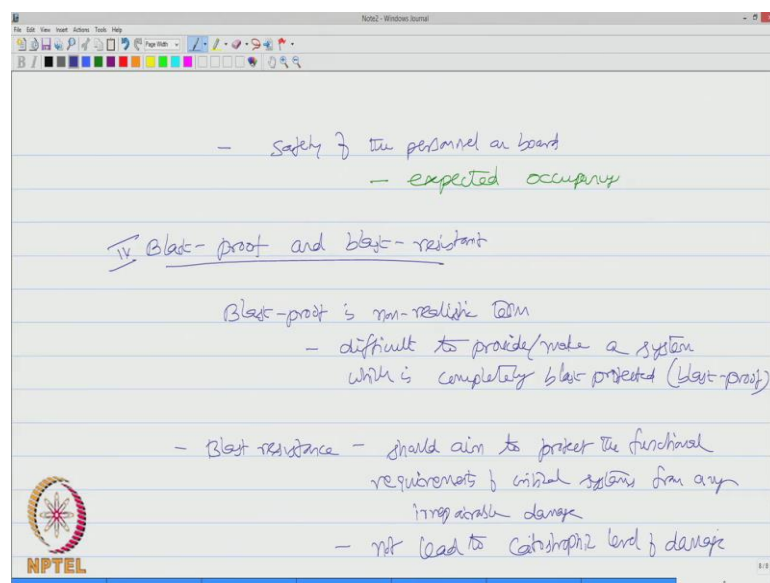 Note2 - Windows Journal
File Edit View Insert Actions Tools Help
Page Width
B I
- Safety of the personnel on board
- expected occupancy
IV Blast-proof and blast-resistant
Blast-proof is non-realistic term
- difficult to provide/make a system
which is completely blast protected (blast-proof)
- Blast resistance - should aim to protect the functional
requirements of critical systems from any
irreparable damage
- not lead to catastrophic level of damage
NPTEL
8/8